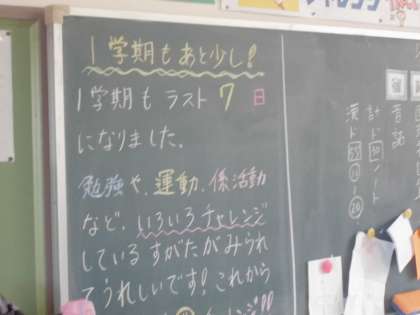 1学期もあと少し!
1学期も ラスト 7 日
になりました。
勉強や、運動、係活動
など、いろいろチャレンジ
している すがたがみられ
てうれしいです! これから
音読
計ド 30 ノート
漢ド